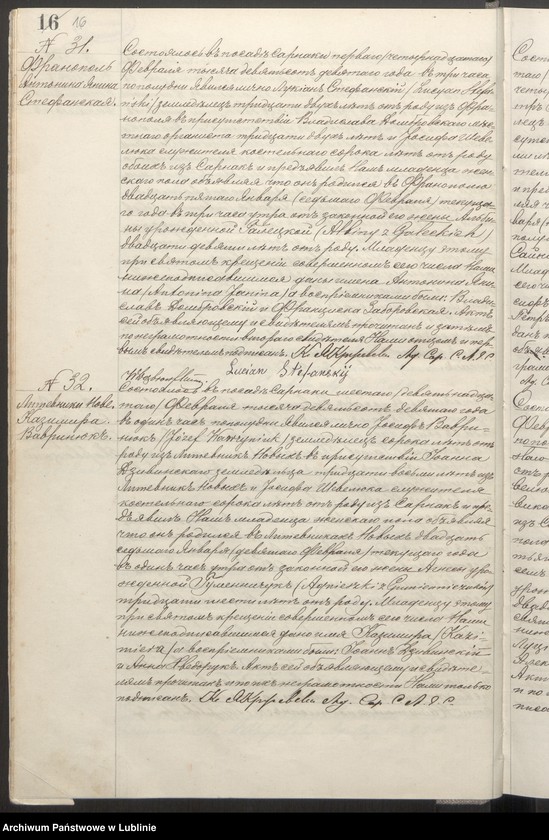 16 16
N 31.
Франополь
Антонина Янина
Стефанская.
Состоялось въ посадѣ Сарнаки перваго /четырнадцатаго/
Февраля тысяча девятьсотъ девятаго года въ три часа
по полудни. Явился лично Лукіанъ Стефанскій /Lucyan Stefań-
ski/ земладѣлецъ тридцати двухъ лѣтъ отъ роду изъ Фра-
нополя въ присутствіи Владислава Домбровскаго мѣ-
стнаго органиста тридцати двухъ лѣтъ и Іосифа Шеве-
люка служителя костельнаго сорока лѣтъ отъ роду
обоихъ изъ Сарнакъ и предъявилъ Намъ младенца жен-
скаго пола объявляя что онъ родился въ Франополю
двадцать пятаго Января /седьмаго Февраля/ текуща-
го года въ три часа утра отъ законной его жены Альби-
ны урожденной Галецкой /Albiny z Galeckich/
двадцати девяти лѣтъ отъ роду. Младенцу этому
при святомъ крещеніи совершенномъ сего числа Нами
нижеподписавшимся даны имена Антонина Яни-
на /Antonina Janina/ а воспріемниками были: Влади-
славъ Домбровскій и Франциска Заборовская. Актъ
сей объявляющему и свидѣтелямъ прочитанъ и затѣмъ
по неграмотности втораго свидѣтеля Нами отцемъ и пер-
вымъ свидѣтелемъ подписанъ.
Lucian Stefanskij
N 32.
Литевники Нове.
Казимира
Вавринюкъ.
Состоялось въ посадѣ Сарнаки шестаго /девятнадца-
таго/ Февраля тысяча девятьсотъ девятаго года
въ одинъ часъ пополудни. Явился лично Іосифъ Ваври-
нюкъ /Józef Wawryniuk/ земладѣлецъ сорока лѣтъ отъ
роду изъ Литевникъ Новыхъ въ присутствіи Іоанна
Дзивинскаго земледѣльца тридцати восьми лѣтъ изъ
Литевникъ Новыхъ и Іосифа Шевелюка служителя
костельнаго сорока лѣтъ отъ роду изъ Сарнакъ и пре-
дъявилъ Намъ младенца женскаго пола объявляя
что онъ родился въ Литевникахъ Новыхъ двадцать
седьмаго Января /девятаго Февраля/ текущаго года
въ одинъ часъ утра отъ законной его жены Агнесы уро-
жденной
тридцати шести лѣтъ отъ роду. Младенцу этому
при святомъ крещеніи совершенномъ сего числа Нами
нижеподписавшимся дано имя Казимира /Kazi-
miera/ а воспріемниками были: Іоаннъ Дзивинскій
и Анна Федорукъ. Актъ сей объявляющему и свидѣте-
лямъ прочитанъ и по ихъ неграмотности Нами только
подписанъ.
Archiwum Państwowe w Lublinie